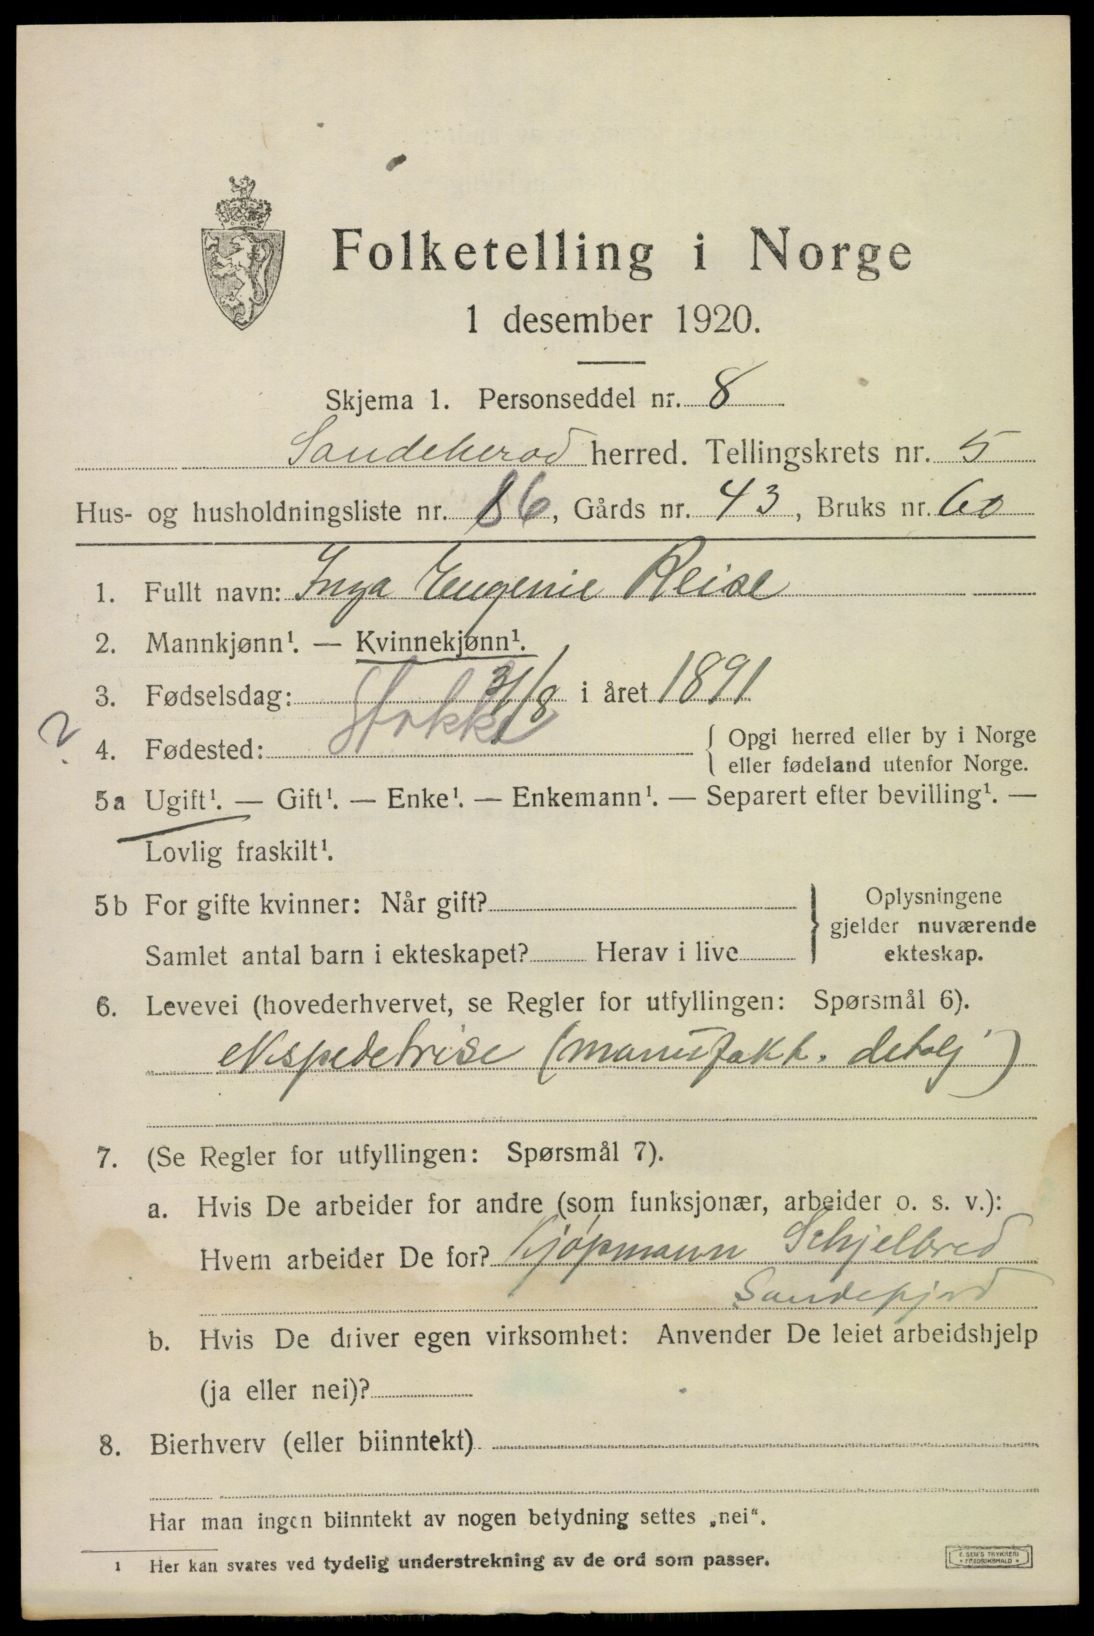 Folketelling i Norge
1 desember 1920.
Skjema 1. Personseddel nr. 8
Sandeherad herred. Tellingskrets nr. 5
Hus- og husholdningsliste nr. 86, Gårds nr. 43, Bruks nr. 60
1. Fullt navn: Inga Eugenie Reise
2. Mannkjønn¹. — Kvinnekjønn¹.
3. Fødselsdag: 31/8 i året 1891
? 4. Fødested: Stokke { Opgi herred eller by i Norge
eller fødeland utenfor Norge.
5a Ugift¹. — Gift¹. — Enke¹. — Enkemann¹. — Separert efter bevilling¹. —
Lovlig fraskilt¹.
5b For gifte kvinner: Når gift?
Samlet antal barn i ekteskapet? Herav i live
} Oplysningene
gjelder nuværende
ekteskap.
6. Levevei (hovederhvervet, se Regler for utfyllingen: Spørsmål 6).
ekspedetrise (manufakt. detalj)
7. (Se Regler for utfyllingen: Spørsmål 7).
a. Hvis De arbeider for andre (som funksjonær, arbeider o. s. v.):
Hvem arbeider De for? Kjøpmann Schjelbred
Sandefjord
b. Hvis De driver egen virksomhet: Anvender De leiet arbeidshjelp
(ja eller nei)?
8. Bierhverv (eller biinntekt)
Har man ingen biinntekt av nogen betydning settes „nei“.
1 Her kan svares ved tydelig understrekning av de ord som passer.
E. SEM'S TRYKKERI
FREDRIKSHALD